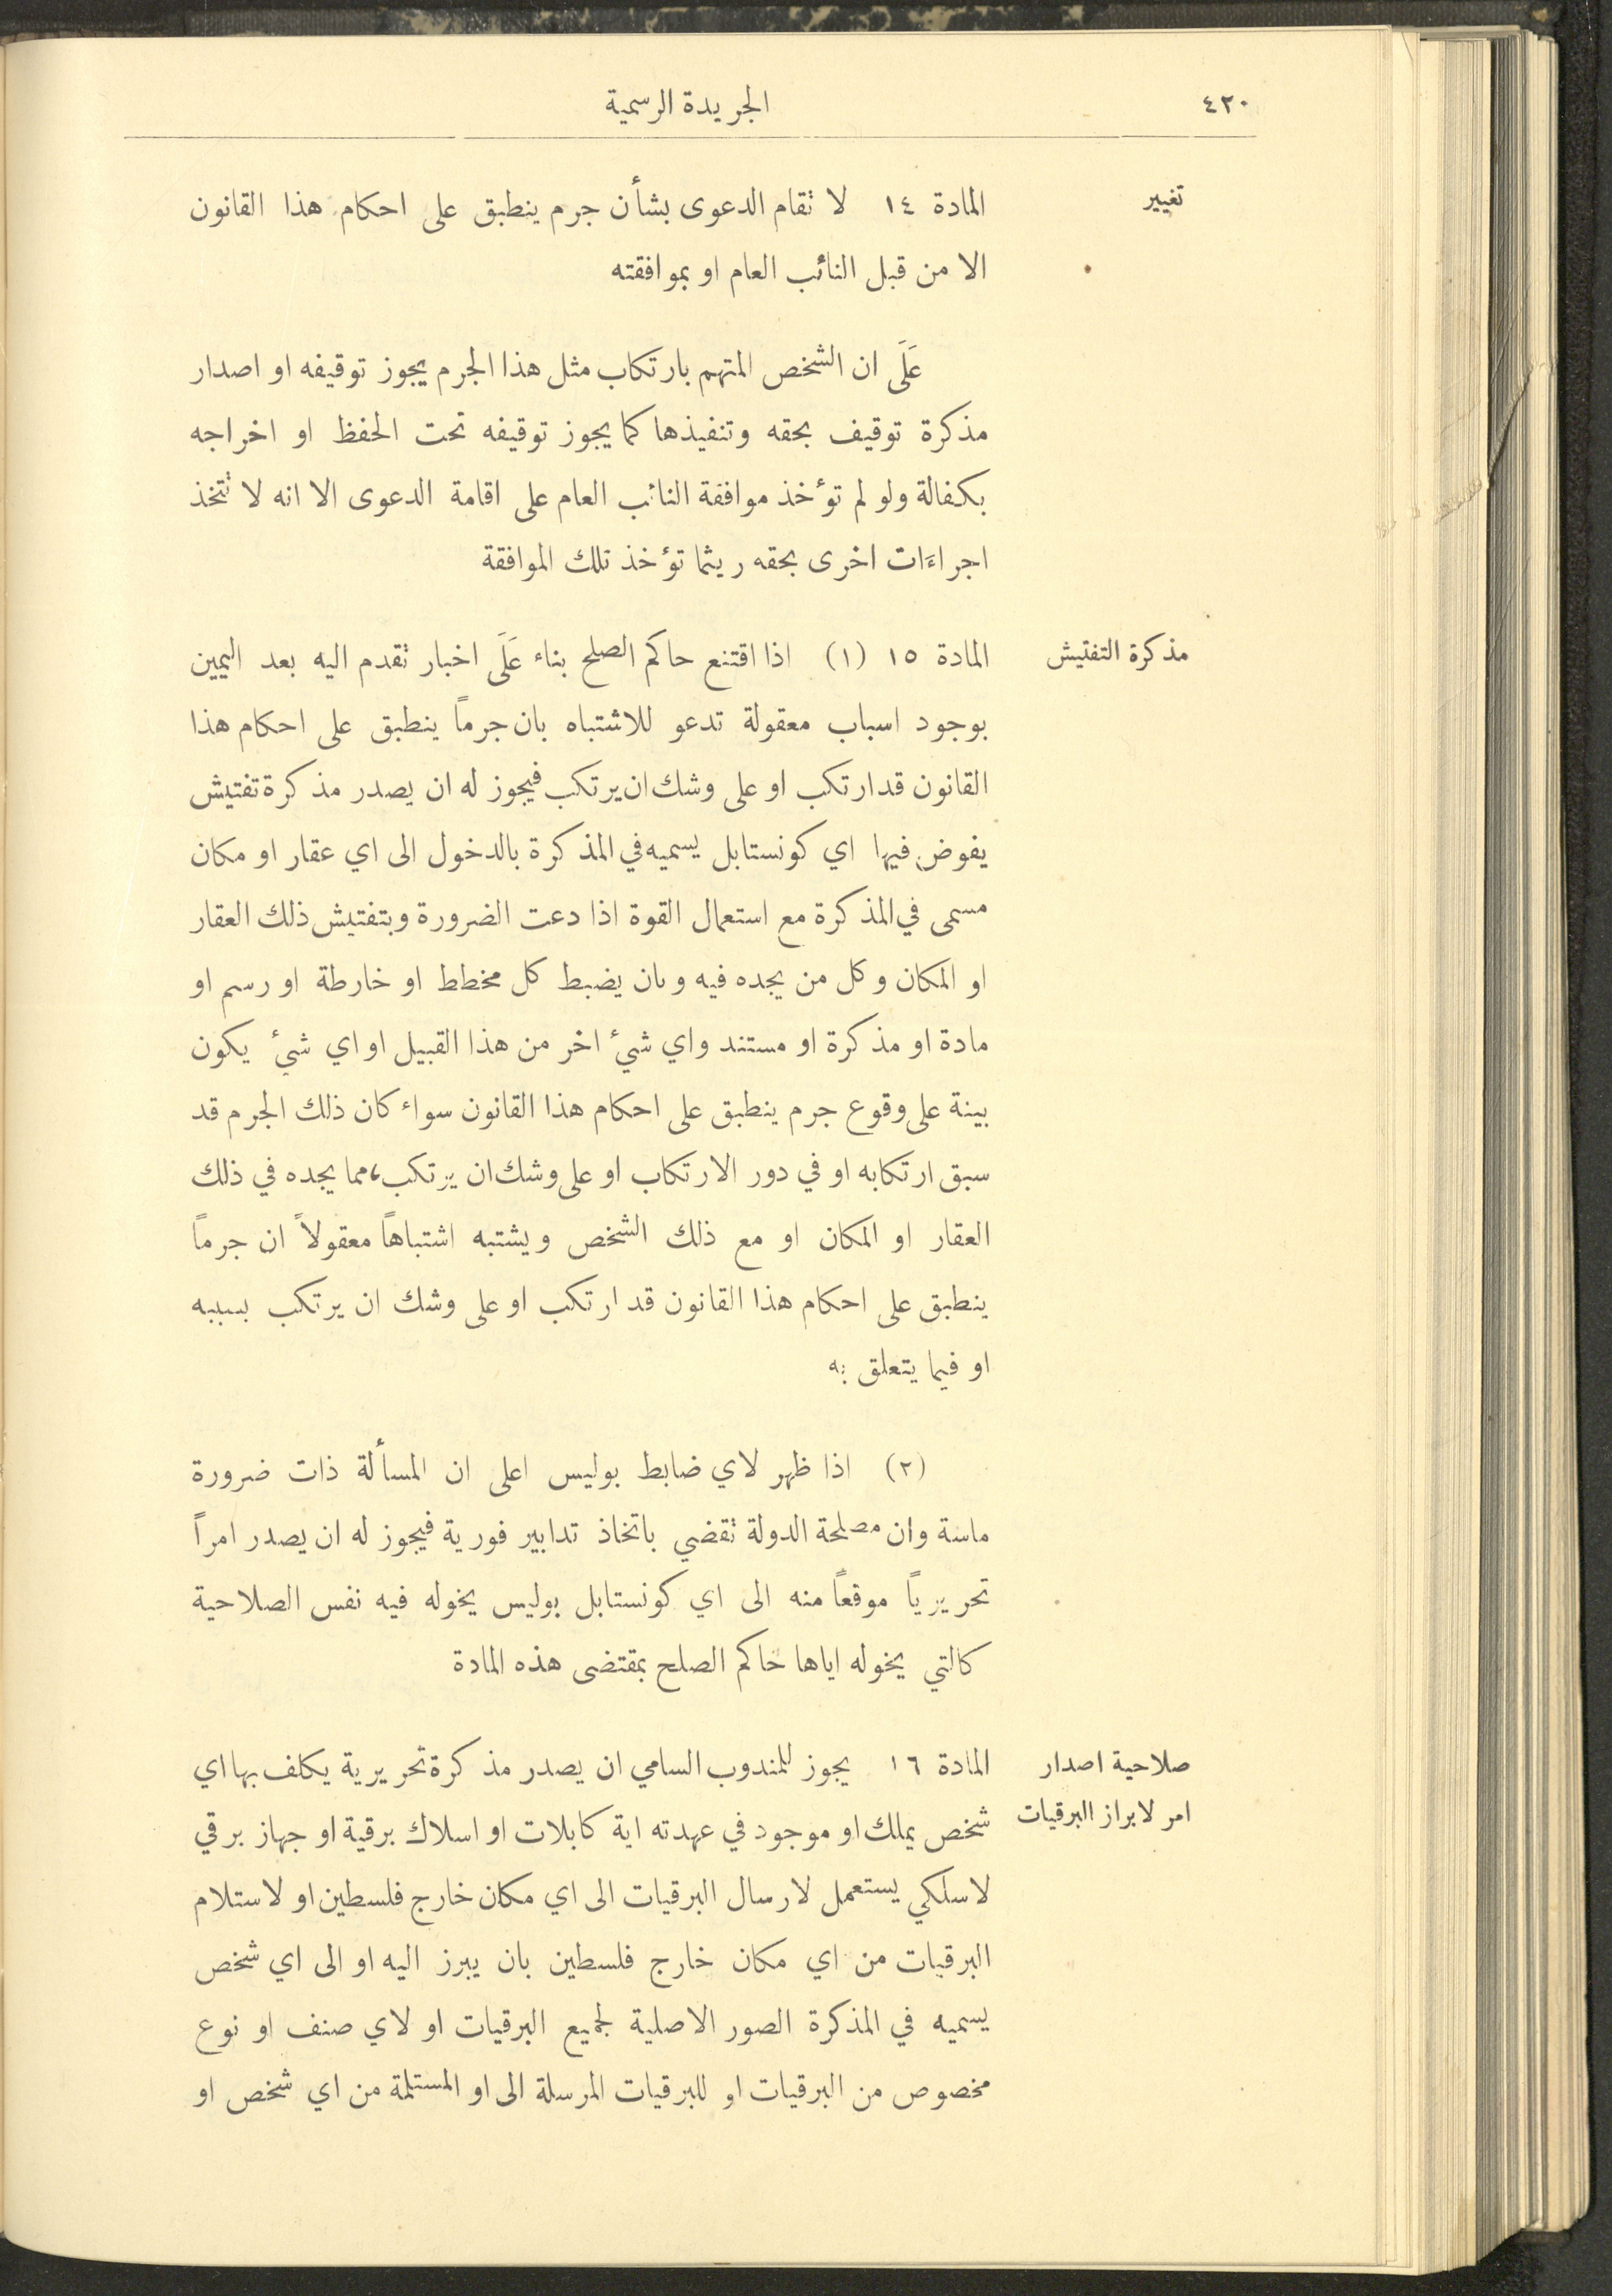 ٤٢٠
الجريدة الرسمية
تغيير
المادة ١٤ لا تقام الدعوى بشأن جرم ينطبق على احكام هذا القانون
الا من قبل النائب العام او بموافقته
عَلَى ان الشخص المتهم بارتكاب مثل هذا الجرم يجوز توقيفه او اصدار
مذكرة توقيف بحقه وتنفيذها كما يجوز توقيفه تحت الحفظ او اخراجه
بكفالة ولو لم تؤخذ موافقة النائب العام على اقامة الدعوى الا انه لا تتخذ
اجراءَات اخرى بحقه ريثما تؤخذ تلك الموافقة
مذكرة التفتيش
المادة ١٥ (١) اذا اقتنع حاكم الصلح بناء عَلَى اخبار تقدم اليه بعد اليمين
بوجود اسباب معقولة تدعو للاشتباه بان جرماً ينطبق على احكام هذا
القانون قد ارتكب او على وشك ان يرتكب فيجوز له ان يصدر مذكرة تفتيش
يفوض فيها اي كونستابل يسميه في المذكرة بالدخول الى اي عقار او مكان
مسمى في المذكرة مع استعمال القوة اذا دعت الضرورة وبتفتيش ذلك العقار
او المكان وكل من يجده فيه وبان يضبط كل مخطط او خارطة او رسم او
مادة او مذكرة او مستند واي شئ اخر من هذا القبيل او اي شئ يكون
بينة على وقوع جرم ينطبق على احكام هذا القانون سواء كان ذلك الجرم قد
سبق ارتكابه او في دور الارتكاب او على وشك ان يرتكب، مما يجده في ذلك
العقار او المكان او مع ذلك الشخص ويشتبه اشتباهاً معقولاً ان جرماً
ينطبق على احكام هذا القانون قد ارتكب او على وشك ان يرتكب بسببه
او فيما يتعلق به
(٢) اذا ظهر لاي ضابط بوليس اعلى ان المسألة ذات ضرورة
ماسة وان مصلحة الدولة تقضي باتخاذ تدابير فورية فيجوز له ان يصدر امراً
تحريرياً موقعاً منه الى اي كونستابل بوليس يخوله فيه نفس الصلاحية
كالتي يخوله اياها حاكم الصلح بمقتضى هذه المادة
صلاحية اصدار
امر لابراز البرقيات
المادة ١٦ يجوز للمندوب السامي ان يصدر مذكرة تحريرية يكلف بها اي
شخص يملك او موجود في عهدته اية كابلات او اسلاك برقية او جهاز برقي
لاسلكي يستعمل لارسال البرقيات الى اي مكان خارج فلسطين او لاستلام
البرقيات من اي مكان خارج فلسطين بان يبرز اليه او الى اي شخص
يسميه في المذكرة الصور الاصلية لجميع البرقيات او لاي صنف او نوع
مخصوص من البرقيات او للبرقيات المرسلة الى او المستلمة من اي شخص او